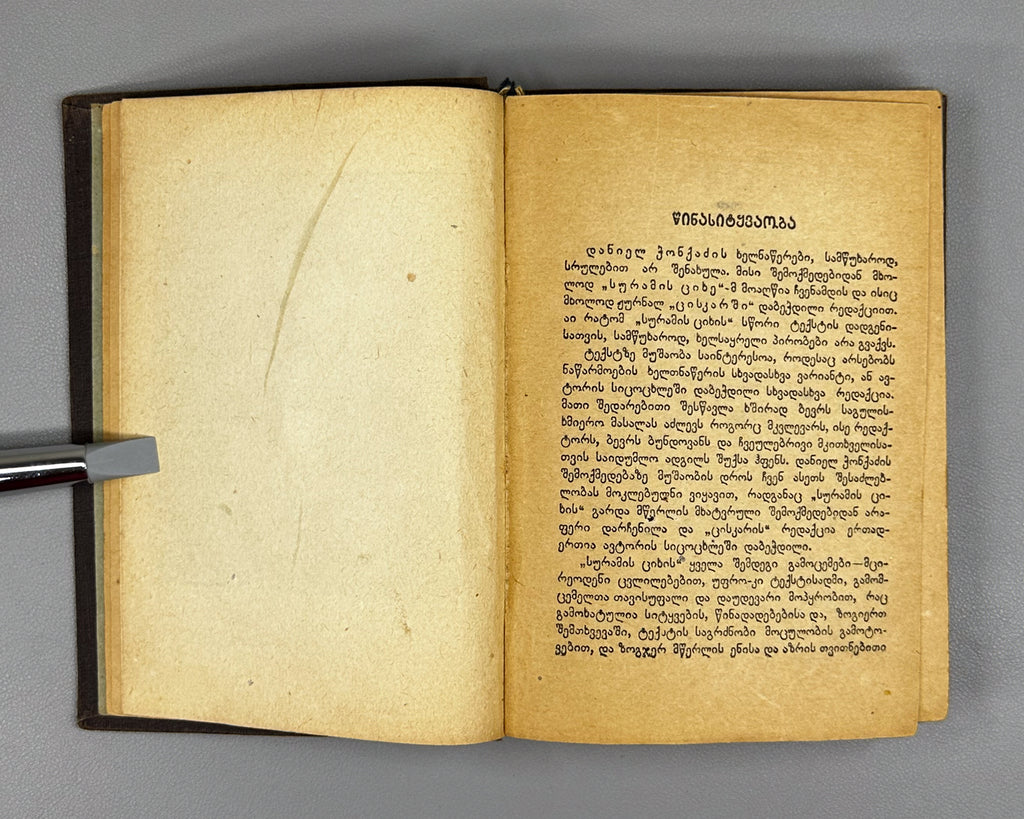 წინასიტყვაობა
დანიელ ჭონქაძის ხელნაწერები, სამწუხაროდ,
სრულებით არ შენახულა. მისი შემოქმედებიდან მხო-
ლოდ „სურამის ციხე“-მ მოაღწია ჩვენამდის და ისიც
მხოლოდ ჟურნალ „ცისკარში“ დაბეჭდილი რედაქციით.
აი რატომ „სურამის ციხის“ სწორი ტექსტის დადგენი-
სათვის, სამწუხაროდ, ხელსაყრელი პირობები არა გვაქვს.
ტექსტზე მუშაობა საინტერესოა, როდესაც არსებობს
ნაწარმოების ხელთნაწერის სხვადასხვა ვარიანტი, ან ავ-
ტორის სიცოცხლეში დაბეჭდილი სხვადასხვა რედაქცია.
მათი შედარებითი შესწავლა ხშირად ბევრს საგულის-
ხმიერო მასალას აძლევს როგორც მკვლევარს, ისე რედაქ-
ტორს, ბევრს ბუნდოვანს და ჩვეულებრივი მკითხველისა-
თვის საიდუმლო ადგილს შუქსა ჰფენს. დანიელ ჭონქაძის
შემოქმედებაზე მუშაობის დროს ჩვენ ასეთს შესაძლებ-
ლობას მოკლებულნი ვიყავით, რადგანაც „სურამის ცი-
ხის“ გარდა მწერლის მხატვრული შემოქმედებიდან არა-
ფერი დარჩენილა და „ცისკარის“ რედაქცია ერთად-
ერთია ავტორის სიცოცხლეში დაბეჭდილი.
„სურამის ციხის“ ყველა შემდეგი გამოცემები—მცი-
რეოდენი ცვლილებებით, უფრო-კი ტექსტისადმი, გამომ-
ცემელთა თავისუფალი და დაუდევარი მოპყრობით, რაც
გამოხატულია სიტყვების, წინადადებებისა და, ზოგიერთ
შემთხვევაში, ტექსტის საგრძნობი მოცულობის გამოტო-
ვებით, და ზოგჯერ მწერლის ენისა და აზრის თვითნებითი